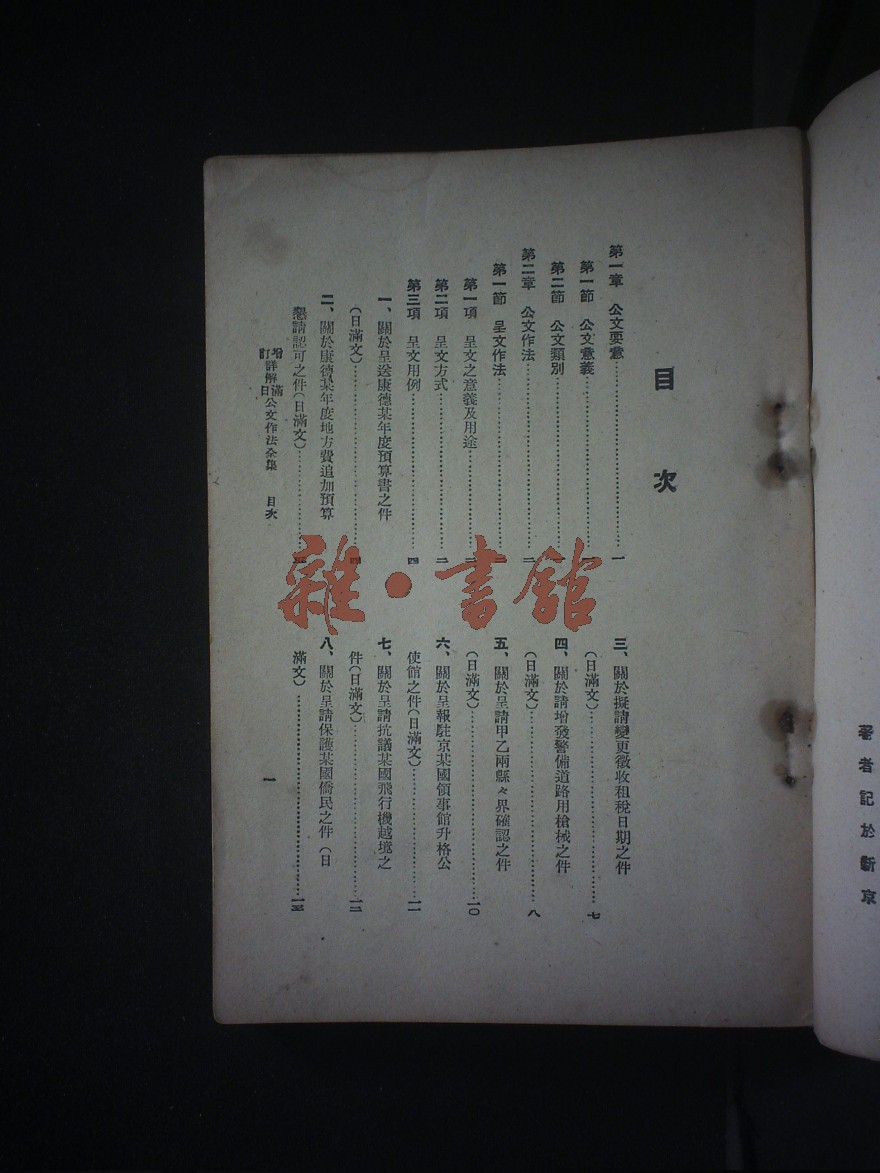 著者記於新京
目次
第一章 公文要意……一
第一節 公文意義……
第二節 公文類別……一
第二章 公文作法……二
第一節 呈文作法……二
第一項 呈文之意義及用途……二
第二項 呈文方式……二
第三項 呈文用例……四
一、關於呈送康德某年度預算書之件
(日滿文)……四
二、關於康德某年度地方費追加預算
懇請認可之件(日滿文)……
三、關於擬請變更徵收租稅日期之件
(日滿文)……七
四、關於請增發警備道路用槍械之件
(日滿文)……八
五、關於呈請甲乙兩縣々界確認之件
(日滿文)……一〇
六、關於呈報駐京某國領事館升格公
使館之件(日滿文)……一一
七、關於呈請抗議某國飛行機越境之
件(日滿文)……一二
八、關於呈請保護某國僑民之件(日
滿文)……一三
增訂詳解滿日公文作法全集 目次
一
雜·書館